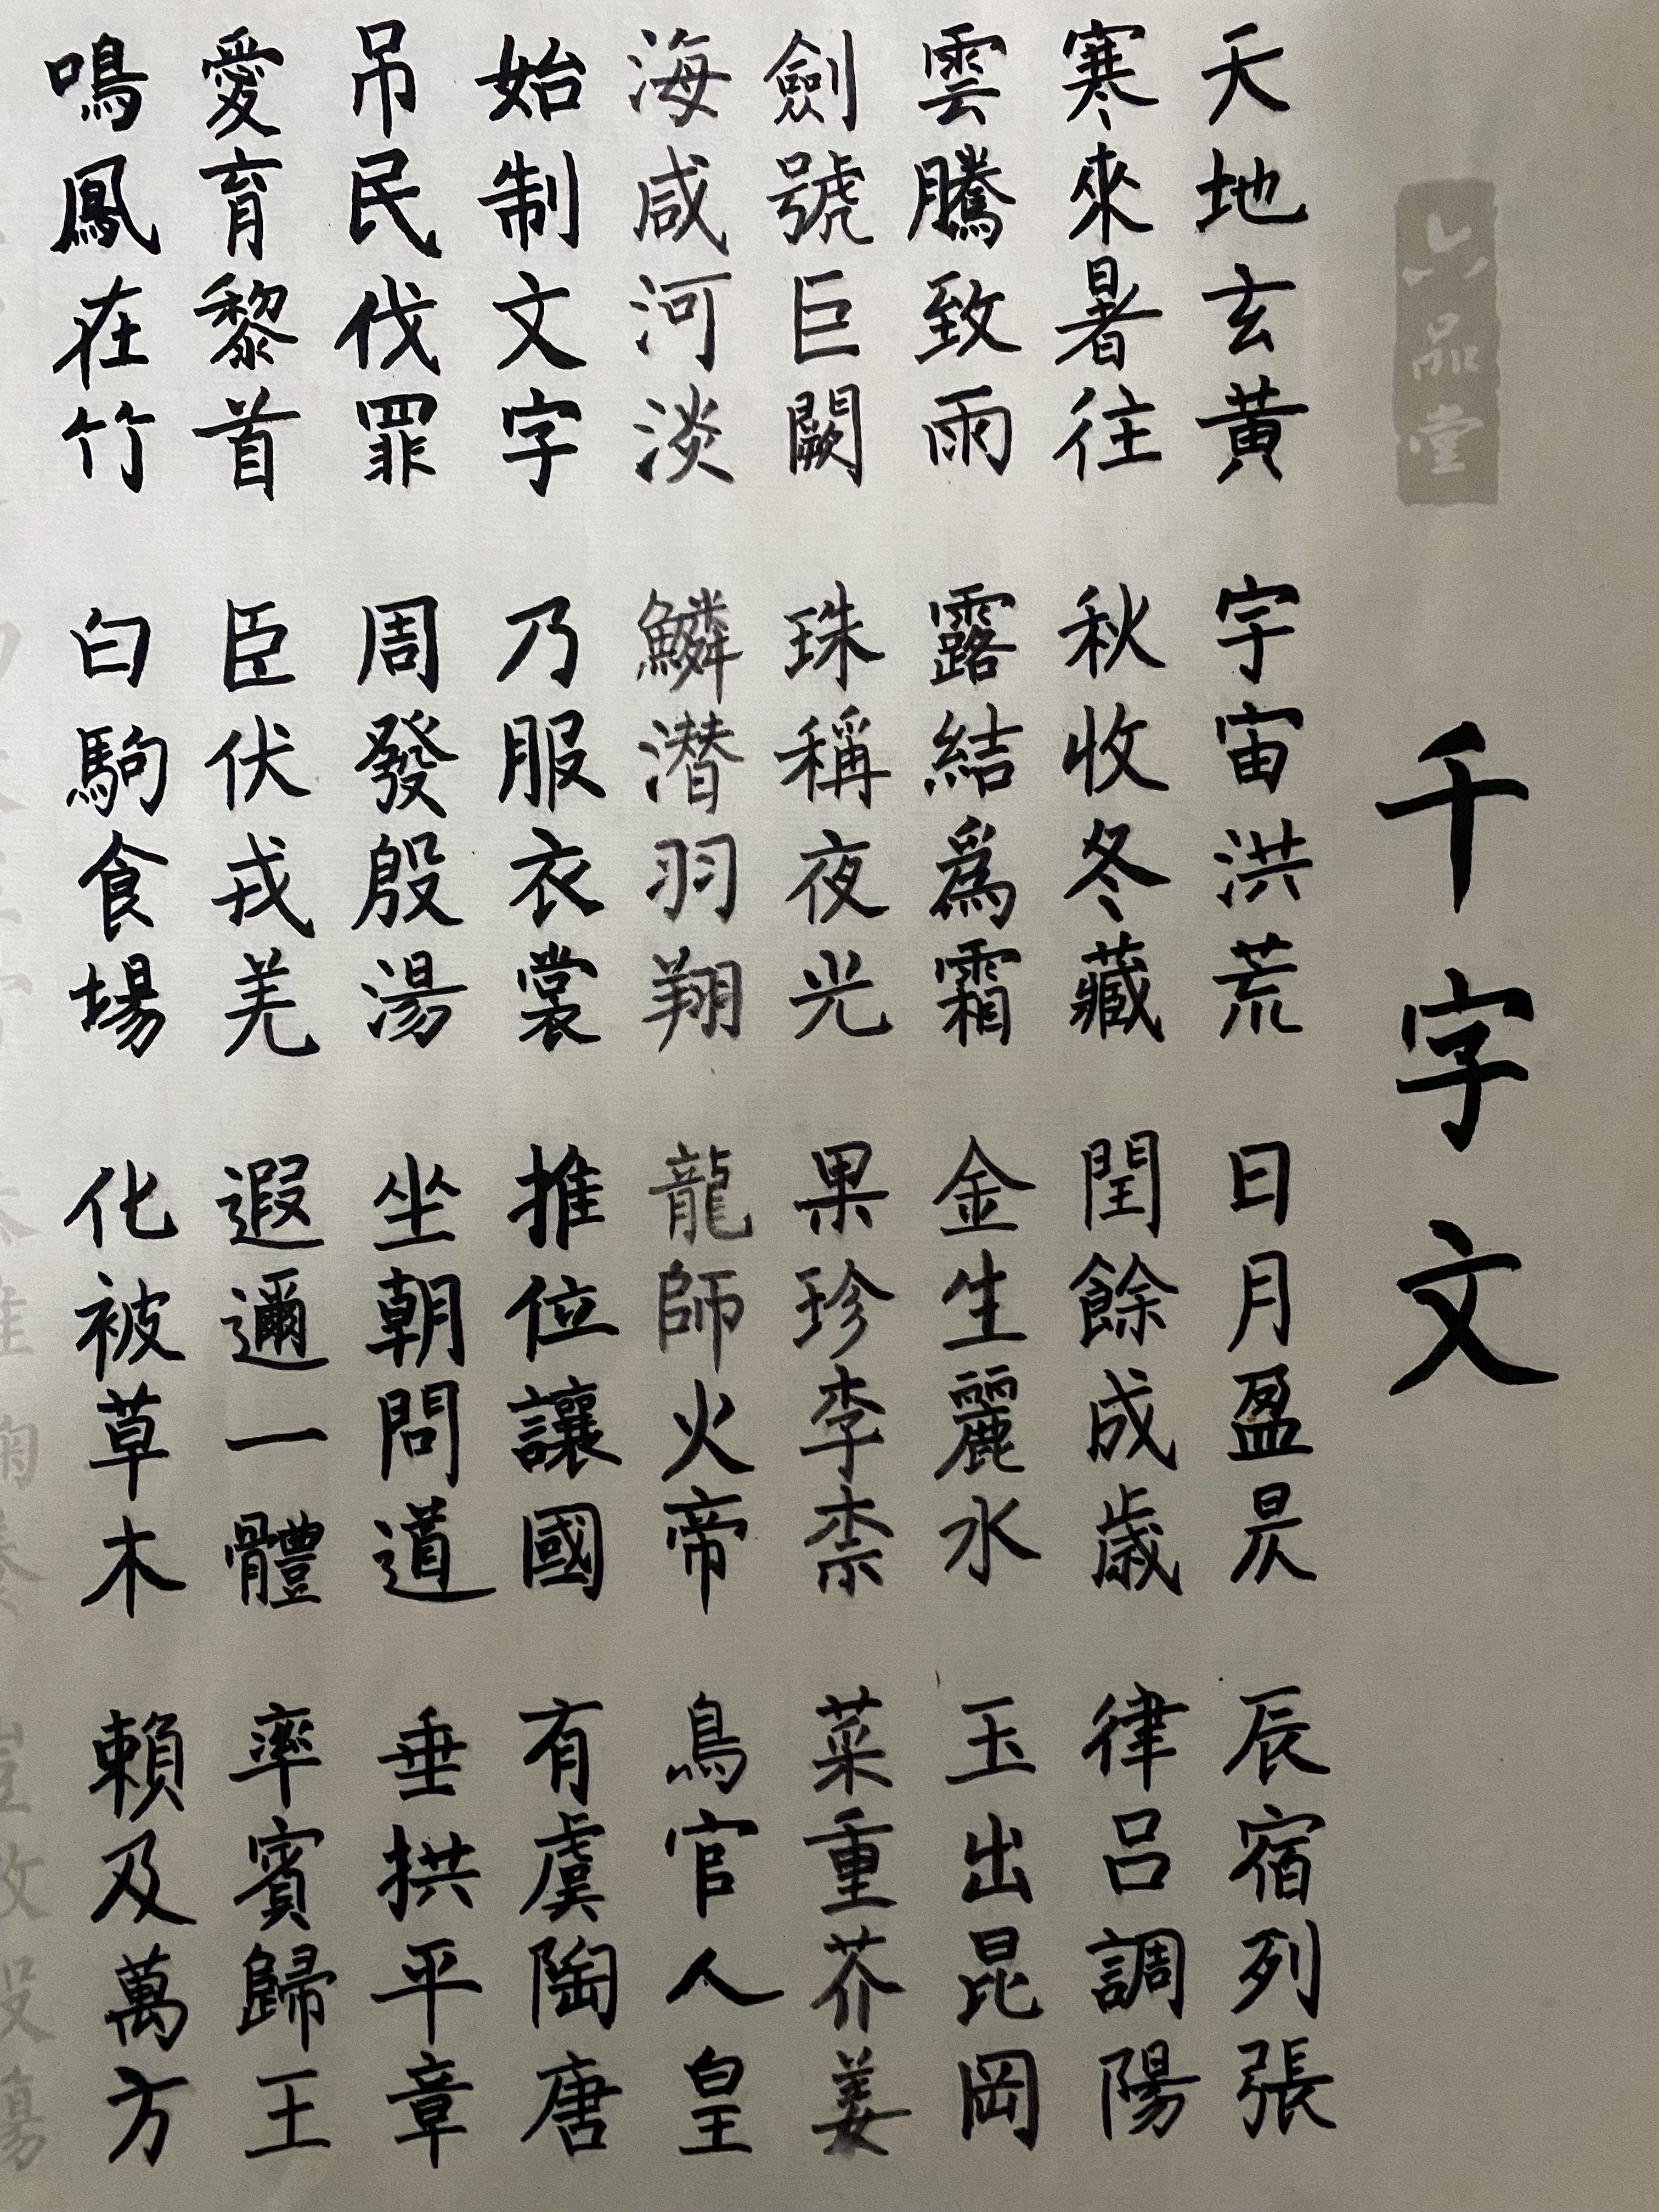 六品堂
千字文
天地玄黃 宇宙洪荒 日月盈昃 辰宿列張
寒來暑往 秋收冬藏 閏餘成歲 律呂調陽
雲騰致雨 露結爲霜 金生麗水 玉出昆岡
劍號巨闕 珠稱夜光 果珍李柰 菜重芥姜
海咸河淡 鱗潜羽翔 龍師火帝 鳥官人皇
始制文字 乃服衣裳 推位讓國 有虞陶唐
吊民伐罪 周發殷湯 坐朝問道 垂拱平章
愛育黎首 臣伏戎羌 遐邇一體 率賓歸王
鳴鳳在竹 白駒食場 化被草木 賴及萬方